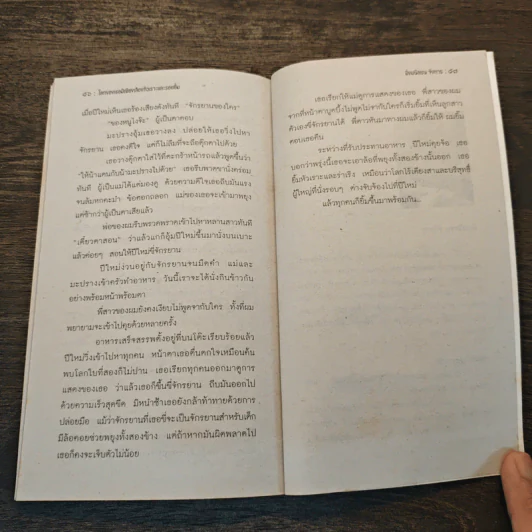 ๕๖ : 
เมื่อปีใหม่เห็นเธอร้องเสียงดังทันที "จักรยานของใคร"
"ของหนูไงจ๊ะ" ผู้เป็นตาตอบ
มะปรางอุ้มเธอวางลง ปล่อยให้เธอวิ่งไปหา
จักรยาน เธอคงดีใจ แต่ก็ไม่ลืมที่จะถือตุ๊กตาไปด้วย
เธอวางตุ๊กตาใส่ไว้ที่ตะกร้าหน้ารถแล้วพูดขึ้นว่า
"ให้น้าแตนกับน้ามะปรางไปด้วย" เธอรีบพาขานั่งคร่อม
ทันที ผู้เป็นแม่ได้แต่มองดู ด้วยความดีใจเธอถีบมันแรง
จนล้มหกคะมำ ข้อศอกถลอก แม่ของเธอจะเข้ามาพยุง
แต่ช้ากว่าผู้เป็นตาเสียแล้ว
พ่อของผมรีบพรวดพราดเข้าไปหาหลานสาวทันที
"เดี๋ยวตาสอน" ว่าแล้วแกก็อุ้มปีใหม่ขึ้นมานั่งบนเบาะ
แล้วค่อยๆ สอนให้ปีใหม่ขี่จักรยาน
ปีใหม่ง่วนอยู่กับจักรยานจนมืดค่ำ แม่และ
มะปรางเข้าครัวทำอาหาร วันนี้เราจะได้นั่งกินข้าวกัน
อย่างพร้อมหน้าพร้อมตา
พี่สาวของผมยังคงเงียบไม่พูดจากับใคร ทั้งที่ผม
พยายามจะเข้าไปคุยด้วยหลายครั้ง
อาหารเสร็จสรรพตั้งอยู่ที่บนโต๊ะเรียบร้อยแล้ว
ปีใหม่วิ่งเข้าไปหาทุกคน หน้าตาเธอตื่นตกใจเหมือนค้น
พบโลกใบที่สองก็ไม่ปาน เธอเรียกทุกคนออกมาดูการ
แสดงของเธอ ว่าแล้วเธอก็ขึ้นขี่จักรยาน ถีบมันออกไป
ด้วยความเร็วสุดขีด มิหนำซ้ำเธอยังกล้าท้าทายด้วยการ
ปล่อยมือ แม้ว่าจักรยานที่เธอขี่จะเป็นจักรยานสำหรับเด็ก
มีล้อคอยช่วยพยุงทั้งสองข้าง แต่ถ้าหากมันผิดพลาดไป
เธอก็คงจะเจ็บตัวไม่น้อย
: ๕๗
เธอเรียกให้แม่ดูการแสดงของเธอ พี่สาวของผม
จากที่หน้าตาบูดบึ้งไม่พูดไม่จากับใครก็เริ่มยิ้มที่เห็นลูกสาว
ตัวเองขี่จักรยานได้ พี่ดาวหันมาทางผมแล้วก็ยิ้มให้ ผมยิ้ม
ตอบเธอคืน
ระหว่างที่รับประทานอาหาร ปีใหม่คุยจ้อ เธอ
บอกว่าพรุ่งนี้เธอจะเอาล้อที่พยุงทั้งสองข้างนั้นออก เธอ
ยิ้มหัวเราะและร่าเริง เหมือนว่าโลกไร้เดียงสาและบริสุทธิ์
ผู้ใหญ่ที่นั่งรอบๆ ต่างจับจ้องไปที่ปีใหม่
แล้วทุกคนก็ยิ้มขึ้นมาพร้อมกัน..